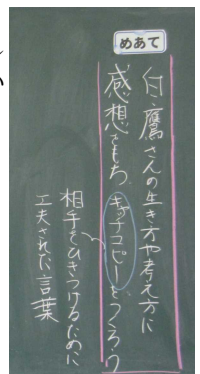 めあて
白鷹さんの生き方や考え方に
感想をもち、キャッチコピーをつくろう
相手をひきつけるために
工夫された言葉